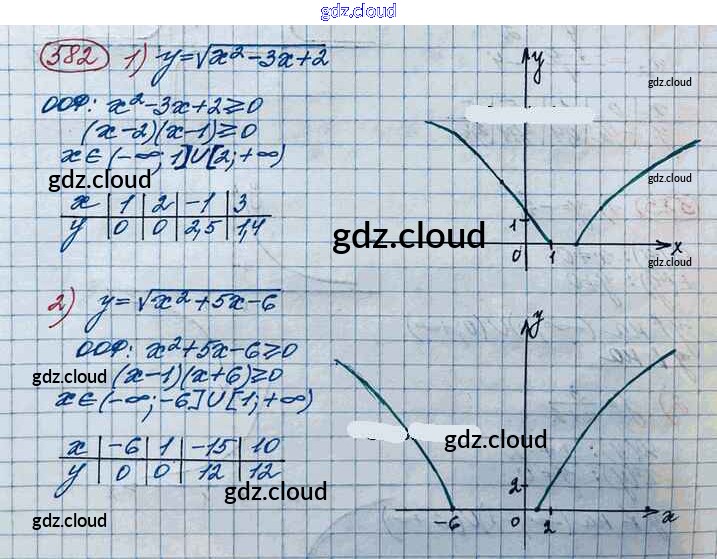 gdz.cloud
582 1) y=√x²-3x+2
ООФ: x²-3x+2≥0
(x-2)(x-1)≥0
x∈(-∞;1]∪[2;+∞)
gdz.cloud
x 1 2 -1 3
y 0 0 2,5 1,4
y
gdz.cloud
gdz.cloud
gdz.cloud
1
0 1 x
gdz.cloud
2) y=√x²+5x-6
ООФ: x²+5x-6≥0
gdz.cloud (x-1)(x+6)≥0
x∈(-∞;-6]∪[1;+∞)
x -6 1 -15 10
y 0 0 12 12
gdz.cloud
gdz.cloud
y
gdz.cloud
2
-6 0 2 x
gdz.cloud